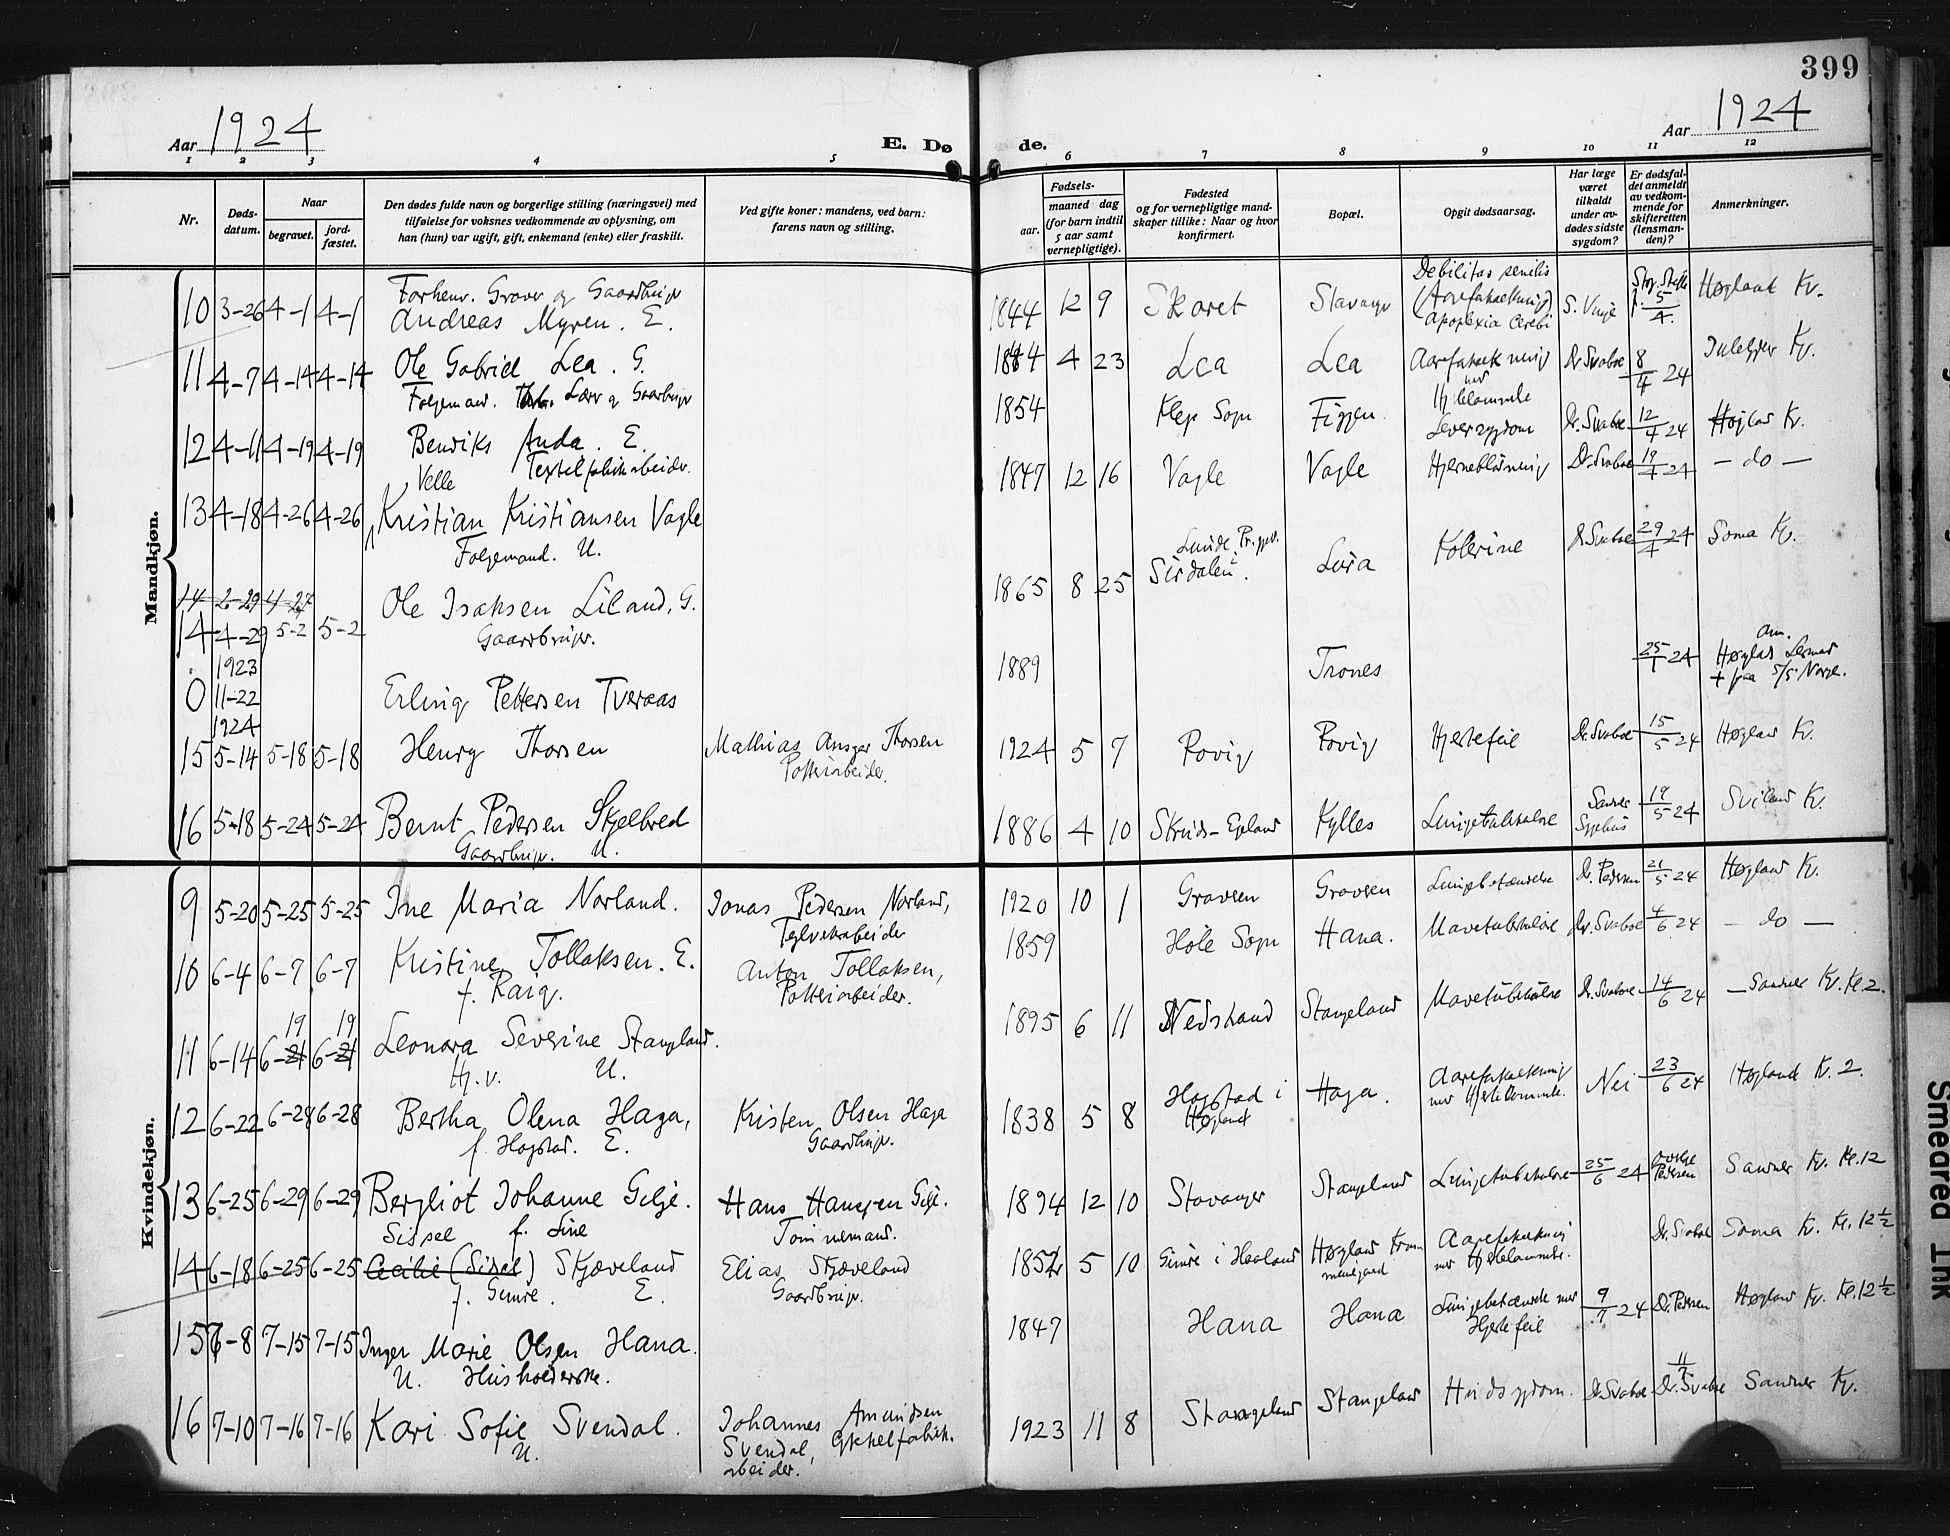 399
Aar 1924
E. Dø
de.
Aar 1924
1 2 3 4 5 6 7 8 9 10 11 12
Nr.
Døds-
datum.
Naar
begravet.
jord-
fæstet.
Den dødes fulde navn og borgerlige stilling (næringsvei) med
tilføielse for voksnes vedkommende av oplysning, om
han (hun) var ugift, gift, enkemand (enke) eller fraskilt.
Ved gifte koner: mandens, ved barn:
farens navn og stilling.
Fødsels-
aar. maaned dag
(for barn indtil
5 aar samt
vernepligtige).
Fødested
og for vernepligtige mand-
skaper tillike: Naar og hvor
konfirmert.
Bopæl.
Opgit dødsaarsag.
Har læge
været
tilkaldt
under av-
dødes sidste
sygdom?
Er dødsfal-
det anmeldt
av vedkom-
mende for
skifteretten
(lensman-
den)?
Anmerkninger.
Mandkjøn.
10 3-26 4-1 4-1 Forhenv. Graver og Gaardbruger
Andreas Myren. E.
1844 12 9 Skaret Stavanger Debilitas senilis
(Aareforkalkning)
Apoplexia Cerebi
S. Vinje 5/4. Høgland Kv.
11 4-7 4-14 4-14 Ole Gabriel Lea. G.
Folgemand. Lærer og Gaardbruger
1844 4 23 Lea Lea Aareforkalkning
med
Hj.blammelse
Dr Svaboe 8/4 24 Kv.
12 4-11 4-19 4-19 Bendiks Anda. E.
Textilfabrikarbeider.
1854 Klep Sogn Figgen. Leversygdom Dr. Svaboe 12/4 24 Kv.
Velle
13 4-18 4-26 4-26 Kristian Kristiansen Vagle
Folgemand. U.
1847 12 16 Vagle Vagle Hjerneblødning Dr. Svaboe 19/4 24 - do -
14 2-29 4-27
14 4-29 5-2 5-2 Ole Isaksen Liland, G.
Gaardbruger.
1865 8 25 Lunde Pr.gjeld.
i
Sirdalen. Lura Kolerine Dr Svaboe 29/4 24 Soma Kv.
1923
0 11-22 Erling Pettersen Tveraas
1889 Trones 25/1 24
1924
15 5-14 5-18 5-18 Henry Thorsen Mathias Ansgar Thorsen
Potteriarbeider.
1924 5 7 Rovig Rovig Hjertefeil Dr. Svaboe 15/5 24 Høgland Kv.
16 5-18 5-24 5-24 Bernt Pedersen Skjelbred
Gaardbruger. U.
1886 4 10 Skruds-Egeland Kylles Lungetuberkulose Sandnes
Sygehus 19/5 24 Sviland Kv.
Kvindekjøn.
9 5-20 5-25 5-25 Ine Maria Norland. Jonas Pedersen Norland,
Teglverksarbeider
1920 10 1 Gravsen Gravsen Lungebetændelse Dr. Pedersen 21/5 24 Høgland Kv.
10 6-4 6-7 6-7 Kristine Tollaksen. E.
f. Raig. Anton Tollaksen,
Potteriarbeider.
1859 Høle Sogn Hana. Mavetuberkulose Dr. Svaboe 4/6 24 - do -
11 6-14 6-21 19 6-21 19 Leonora Severine Stangeland.
Hj. v. U.
1895 6 11 Nedstrand Stangeland Mavetuberkulose Dr. Svaboe 14/6 24 - Sandnes Kv. Kl. 2.
12 6-22 6-28 6-28 Bertha Olena Haga,
f. Hogstad. E. Kristen Olsen Haga
Gaardbruger.
1838 5 8 Hogstad i
Høgland Haga. Aareforkalkning
med Hjertelammelse. Nei 23/6 24 Høgland Kv. 2.
13 6-25 6-29 6-29 Bergliot Johanne Gilje.
f. Line Hans Hansen Gilje.
Tømmermand.
1894 12 10 Stavanger Stangeland Lungetuberkulose 25/6 24 Pedersen Sandnes Kv. Kl. 12
Sissel
14 6-18 6-25 6-25 Cecilie (Sissel) Skjæveland
f. Gimre. E. Elias Skjæveland
Gaardbruger.
1852 5 10 Gimre i Haaland Høgland Aareforkalkning
med Hjertelammelse. Dr. Svaboe Soma Kv. Kl. 12½
15 7-8 7-15 7-15 Inger Marie Olsen Hana.
U. Husholderske.
1847 Hana Hana Lungebetændelse med
Hjertefeil 9/7 24 Dr. Pedersen Høgland Kv. Kl. 12½
16 7-10 7-16 7-16 Kari Sofie Svendal.
U. Johannes Amundsen
Svendal, Cykkelfabrik-
arbeider.
1923 11 8 Stangeland Stangeland Hudsygdom. Dr. Svaboe 11/7 Dr. Svaboe Sandnes Kv.
Smeared Ink